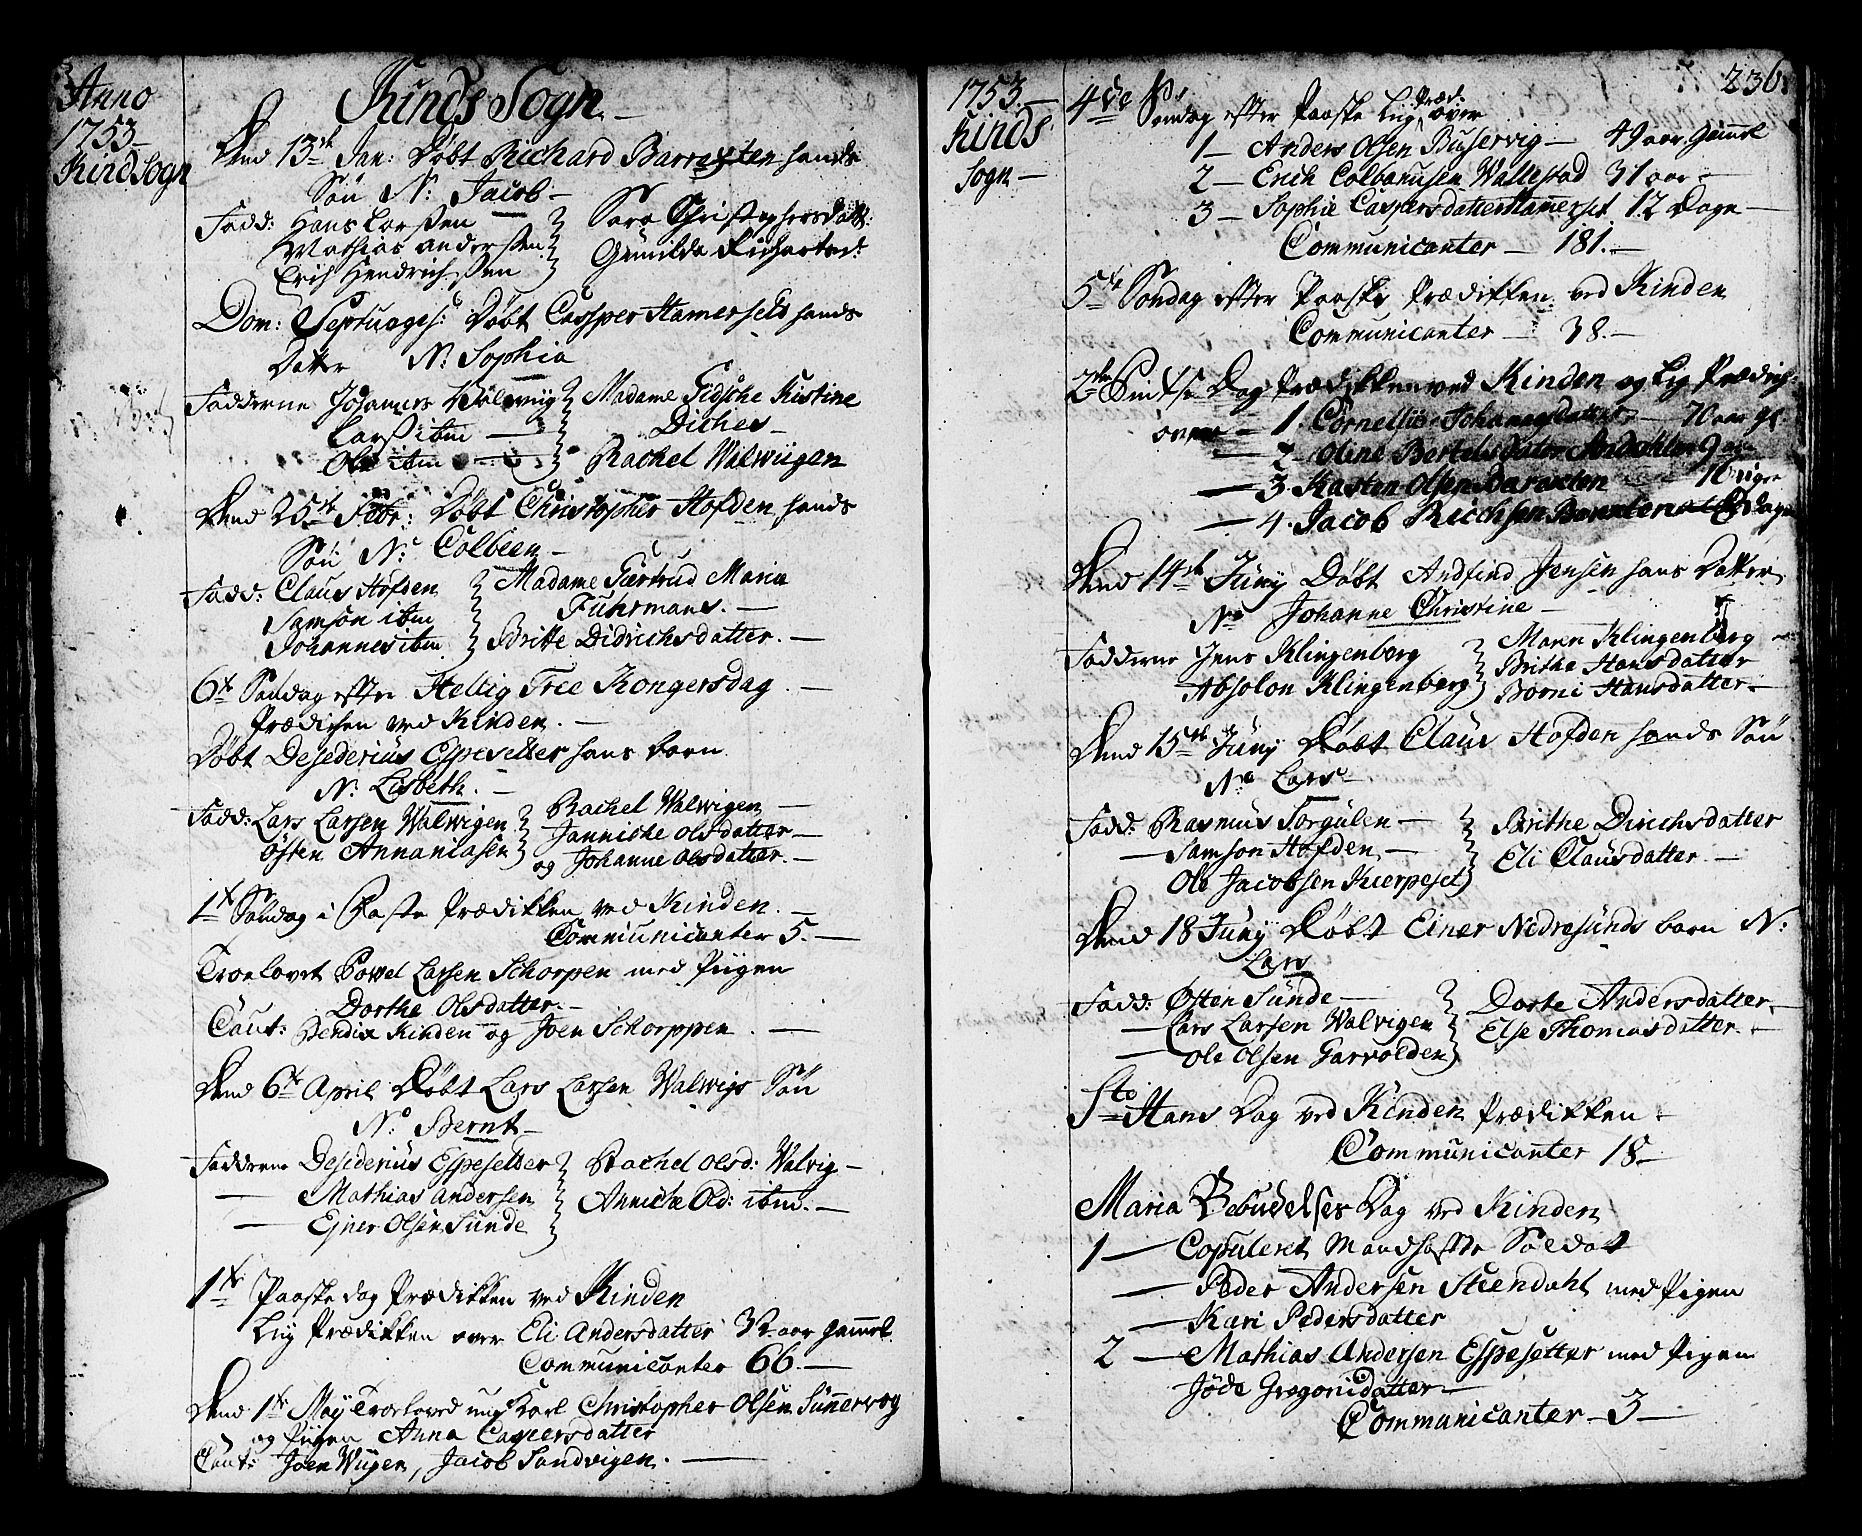 Anno
1753
Kind Sogn
Kinds Sogn
Dend 13de Jan: Døbt Richard Barraxten hands
Søn N: Jacob
Fadd: Hans Larssen
Mathias Anderssen
Erich Hendrichssen
Sara Christophersdatt:
Gunilda Richartsd:
Dom: Septuages: Døbt Casper Hamersets hands
Datter N: Sophia
Fadderne Johannes Walwüg
Lars ibm
Ole ibm
Madame Fidsche Kistine
Diches
Rachel Walwügen
Dend 25de Febr: Døbt Christopher Hofden hands
Søn N: Colbeen
Fadd: Claus Hofden
Samson ibm
Johannes ibm
Madame Giertrud Maria
Fuhrmans.
Britte Didrichsdatter.
6te Søndag efter Hellig Tree Kongersdag
Prædichen ved Kinden.
Døbt Desederius Espesetter hans barn
N: Lisbeth.
Fadd: Lars Larsen Walwigen
Østen Annaniasen
Rachel Walwigen
Jannicke Olsdatter
og Johanne Olsdatter.
1te Søndag i Faste Prædikken ved Kinden.
Communicanter 5.
Troelovet Powel Larsen Schorpen med Piigen
Dorthe Olsdatter
Caut: Bendix Kinden og Joen Schorppen
Dend 6te April Døbt Lars Larsen Walwigs Søn
No Bernt
Fadderne Desiderius Espesetter
Mathias Andersen
Ejner Olsen Sunde
Rachel Olsd: Walvig
Anniche Od: ibm.
1te Paaske dag Prædikken ved Kinden
Liig Prædikken over Eli Andersdatter 32 aar gammel.
Communicanter 66.
Dend 1te Maij Troeloved ung Karl Christopher Olsen Sunnervog
og Piigen Anna Caspersdatter
Caut: Joen Wügen, Jacob Sandvigen.
1753.
Kinds
Sogn
236.
4de Søndag efter Paaske Liig Præd: over
1 Anders Olsen Buservig 49 aar gammel
2 Erich Colbanusen Wallestad 31 aar
3 Sophie Caspersdatter Hamerset 12 Dage
Communicanter 181.
5te Søndag efter Paaske Prædikken ved Kinden
Communicanter 38.
2den Pintse Dag Prædikken ved Kinden og Lig Prædich:
over 1. Cornelsia Johannesdatter 70 aar gl.
2. Oline Bertels Datter 9
3 Karsten Olsen Baraxten 16 uger
4. Jacob Ricchsen Baraxten Dage
Dend 14de Juny Døbt Andfind Jensen hans Datter
No Johanne Christine
Fadderne Jens Klingenberg
Absolon Klingenberg
Maren Klingenberg
Brithe Hansdatter
Borni Hansdatter
Dend 15de Juny Døbt Claus Hofden hands Søn
No Lars
Fadd: Rasmus Torgulen
Samson Hofden
Ole Jacobsen Kierpeset
Brithe Dirichsdatter
Eli Clausdatter.
Dend 18 Juny Døbt Einer Nedresunds barn N:
Lars
Fadd: Østen Sunde
Lars Larsen Walvigen
Ole Olsen Farvolden
Dorte Andersdatter
Else Thomasdatter.
Sto Hans Dag ved Kinden Prædikken
Communicanter 18
Maria Bebudelses Dag ved Kinden
1 Copuleret Mandhaffte Soldat
Peder Andersen Steendahl med Pigen
Kari Pedersdatter
2 Mathias Andersen Espesetter med Pigen
Jøde Gregorsidatter
Communicanter 3